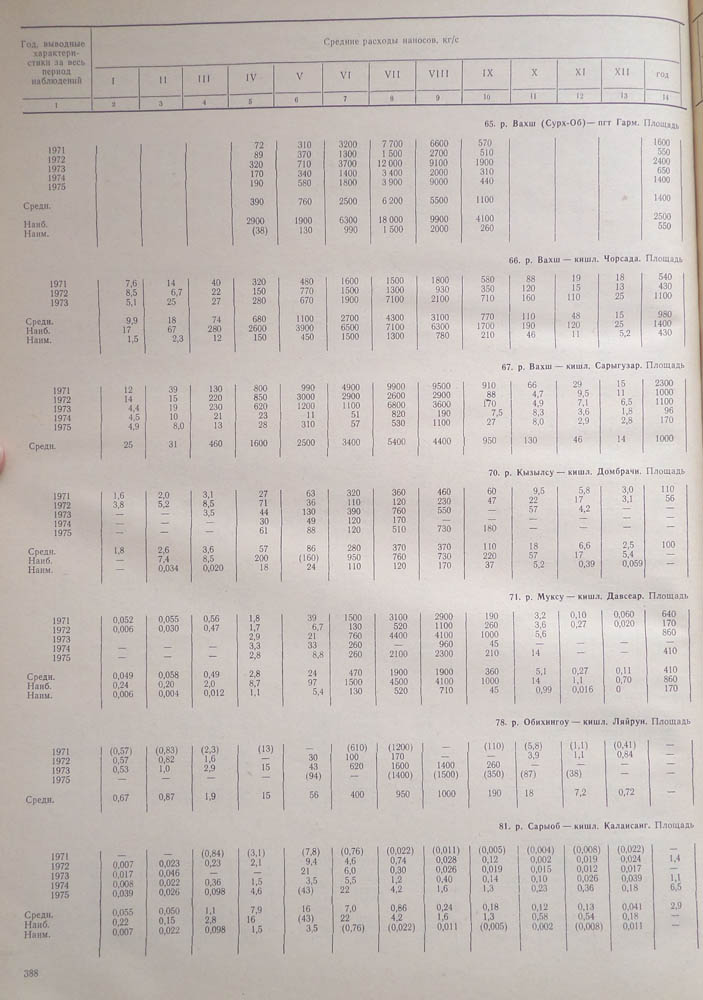 Год, выводные характери-стики за весь период наблюдений | Средние расходы наносов, кг/с
I II III IV V VI VII VIII IX X XI XII год
1 2 3 4 5 6 7 8 9 10 11 12 13 14
65. р. Вахш (Сурх-Об) — пгт Гарм. Площадь
1971 72 310 3200 7 700 6600 570 1600
1972 89 370 1300 1 500 2700 510 550
1973 320 710 3700 12 000 9100 1900 2400
1974 170 340 1400 3 400 2000 310 650
1975 190 580 1800 3 900 9000 440 1400
Средн. 390 760 2500 6 200 5500 1100 1400
Наиб. 2900 1900 6300 18 000 9900 4100 2500
Наим. (38) 130 990 1 500 2000 260 550
66. р. Вахш — кишл. Чорсада. Площадь
1971 7,6 14 40 320 480 1600 1500 1800 580 88 19 18 540
1972 8,5 6,7 22 150 770 1500 1300 930 350 120 15 13 430
1973 5,1 25 27 280 670 1900 7100 2100 710 160 110 25 1100
Средн. 9,9 18 74 680 1100 2700 4300 3100 770 110 48 15 980
Наиб. 17 67 280 2600 3900 6500 7100 6300 1700 190 120 25 1400
Наим. 1,5 2,3 12 150 450 1500 1300 780 210 46 11 5,2 430
67. р. Вахш — кишл. Сарыгузар. Площадь
1971 12 39 130 800 990 4900 9900 9500 910 66 29 15 2300
1972 14 15 220 850 3000 2900 2600 2900 88 4,7 9,5 11 1000
1973 4,4 19 230 620 1200 1100 6800 3600 170 4,9 7,1 6,5 1100
1974 4,5 10 21 23 11 51 820 190 7,5 8,3 3,6 1,8 96
1975 4,9 8,0 13 28 310 57 530 1100 27 8,0 2,9 2,8 170
Средн. 25 31 460 1600 2500 3400 5400 4400 950 130 46 14 1000
70. р. Кызылсу — кишл. Домбрачи. Площадь
1971 1,6 2,0 3,1 27 63 320 360 460 60 9,5 5,8 3,0 110
1972 3,8 5,2 8,5 71 36 110 120 230 47 22 17 3,1 56
1973 — — 3,5 44 130 390 760 550 — 57 4,2 — —
1974 — — — 30 49 120 170 — — — — — —
1975 — — — 61 88 120 510 730 180 — — — —
Средн. 1,8 2,6 3,6 57 86 280 370 370 110 18 6,6 2,5 100
Наиб. — 7,4 8,5 200 (160) 950 760 730 220 57 17 5,4 —
Наим. — 0,034 0,020 18 24 110 120 170 37 5,2 0,39 0,059 —
71. р. Муксу — кишл. Давсеар. Площадь
1971 0,052 0,055 0,56 1,8 39 1500 3100 2900 190 3,2 0,10 0,060 640
1972 0,006 0,030 0,47 1,7 6,7 130 520 1100 260 3,6 0,27 0,020 170
1973 2,9 21 760 4400 4100 1000 5,6 860
1974 — — — 3,3 33 260 — 960 45 — — — —
1975 — — — 2,8 8,8 260 2100 2300 210 14 — — 410
Средн. 0,049 0,058 0,49 2,8 24 470 1900 1900 360 5,1 0,27 0,11 410
Наиб. 0,24 0,20 2,0 8,7 97 1500 4500 4100 1000 14 1,1 0,70 860
Наим. 0,006 0,004 0,012 1,1 5,4 130 520 710 45 0,99 0,016 0 170
78. р. Обихингоу — кишл. Ляйрун. Площадь
1971 (0,57) (0,83) (2,3) (13) — (610) (1200) — (110) (5,8) (1,1) (0,41) —
1972 0,57 0,82 1,6 — 30 100 170 — — 3,9 1,1 0,84 —
1973 0,53 1,0 2,9 15 43 620 1600 1400 260 — — — —
1975 — — — — (94) — (1400) (1500) (350) (87) (38) — —
Средн. 0,67 0,87 1,9 15 56 400 950 1000 190 18 7,2 0,72 —
81. р. Сарыоб — кишл. Калаисанг. Площадь
1971 — — (0,84) (3,1) (7,8) (0,76) (0,022) (0,011) (0,005) (0,004) (0,008) (0,022) —
1972 0,007 0,023 0,23 2,1 9,4 4,6 0,74 0,028 0,12 0,002 0,019 0,024 1,4
1973 0,017 0,046 — — 21 6,0 0,30 0,026 0,019 0,015 0,012 0,017 —
1974 0,008 0,022 0,36 1,5 3,5 5,5 1,2 0,40 0,14 0,10 0,026 0,039 1,1
1975 0,039 0,026 0,098 4,6 (43) 22 4,2 1,6 1,3 0,23 0,36 0,18 6,5
Средн. 0,055 0,050 1,1 7,9 16 7,0 0,86 0,24 0,18 0,12 0,13 0,041 2,9
Наиб. 0,22 0,15 2,8 16 (43) 22 4,2 1,6 1,3 0,58 0,54 0,18 —
Наим. 0,007 0,022 0,098 1,5 3,5 (0,76) (0,022) 0,011 (0,005) 0,002 (0,008) 0,011 —
388